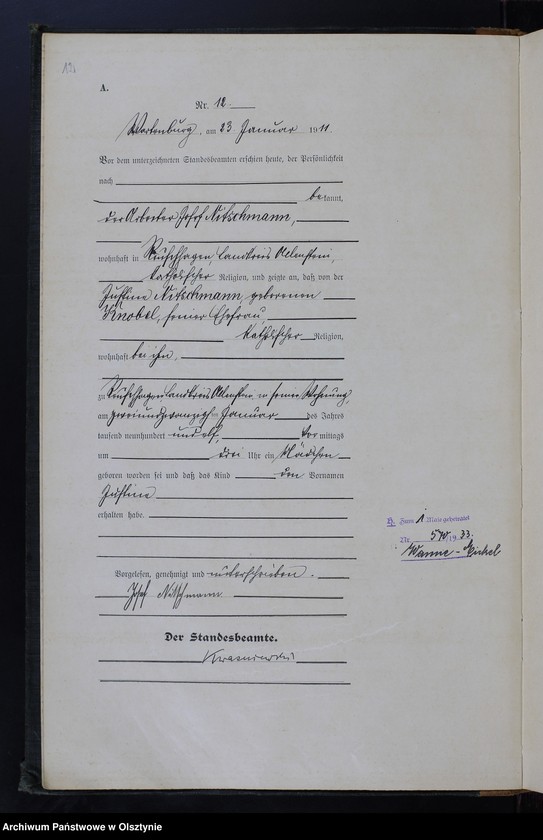 12.
A.
Nr. 12.
Wartenburg, am 23. Januar 1911.
Vor dem unterzeichneten Standesbeamten erschien heute, der Persönlichkeit
nach
bekannt,
der Arbeiter Josef Nitschmann,
wohnhaft in Landkreis Allenstein,
katholischer Religion, und zeigte an, daß von der
Justine Nitschmann geborenen
Knobel, seiner Ehefrau,
katholischer Religion,
wohnhaft bei ihm,
zu Landkreis Allenstein, in seiner Wohnung,
am zweiundzwanzigsten Januar des Jahres
tausend neunhundert und elf, Vormittags
um drei Uhr ein Mädchen
geboren worden sei und daß das Kind den Vornamen
Justine
erhalten habe.
Vorgelesen, genehmigt und unterschrieben.
Josef Nitschmann
Der Standesbeamte.
H. Zum 1 Male geheiratet
Nr. 1933.
Wanne-Eickel
Archiwum Państwowe w Olsztynie